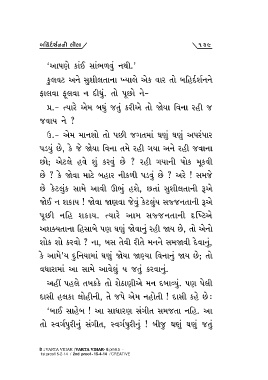 બહિર્દર્શનની લીલા
૧૩૯
‘આપણે કાંઈ સાંભળવું નથી.’
કુલવટ અને સુશીલતાના ખ્યાલે એક વાર તો બહિર્દર્શનને
ફાલવા ફૂલવા ન દીધું. તો પૂછો ને-
પ્ર.- ત્યારે એમ બધું જતું કરીએ તો જોયા વિના રહી જ
જવાય ને ?
ઉ.- એમ માનશો તો પછી જગતમાં ઘણું ઘણું અપરંપાર
પડ્યું છે, કે જે જોયા વિના તમે રહી ગયા અને રહી જવાના
છો; એટલે હવે શું કરવું છે ? રહી ગયાની પોક મૂકવી
છે ? કે જોવા માટે બહાર નીકળી પડવું છે ? અરે ! સમજે
છે કેટલુંક સામે આવી ઊભું હશે, છતાં સુશીલતાની રૂએ
જોઈ ન શકાય ! જોવા જાણવા જેવું કેટલુંય સજ્જનતાની રૂએ
પૂછી નહિ શકાય. ત્યારે આમ સજ્જનતાની દૃષ્ટિએ
અશક્યતાના હિસાબે પણ ઘણું જોવાનું રહી જાય છે, તો એનો
શોક શો કરવો ? ના, બસ તેવી રીતે મનને સમજાવી દેવાનું,
કે આમે'ય દુનિયામાં ઘણું જોયા જાણ્યા વિનાનું જાય છે; તો
વધારામાં આ સામે આવેલું ય જતું કરવાનું.
અહીં પહેલે તબક્કે તો શેઠાણીએ મન દબાવ્યું. પણ પેલી
દાસી હલકા લોહીની, તે જંપે એમ નહોતી ! દાસી કહે છે:
‘બાઈ સાહેબ ! આ સાધારણ સંગીત સમજતા નહિ. આ
તો સ્વર્ગપુરીનું સંગીત, સ્વર્ગપુરીનું ! બીજું ઘણું ઘણું જતું